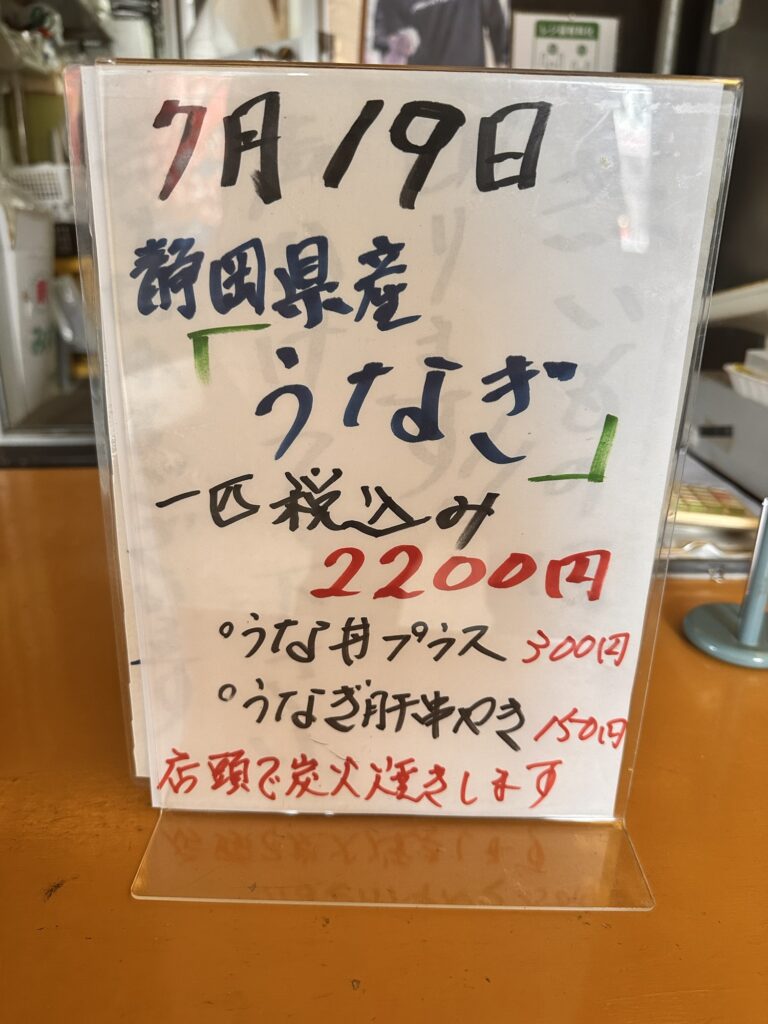 7月19日
静岡県産
「うなぎ」
一匹税込み
2200円
°うな丼プラス 300円
°うなぎ肝串やき 150円
店頭で炭火焼きします